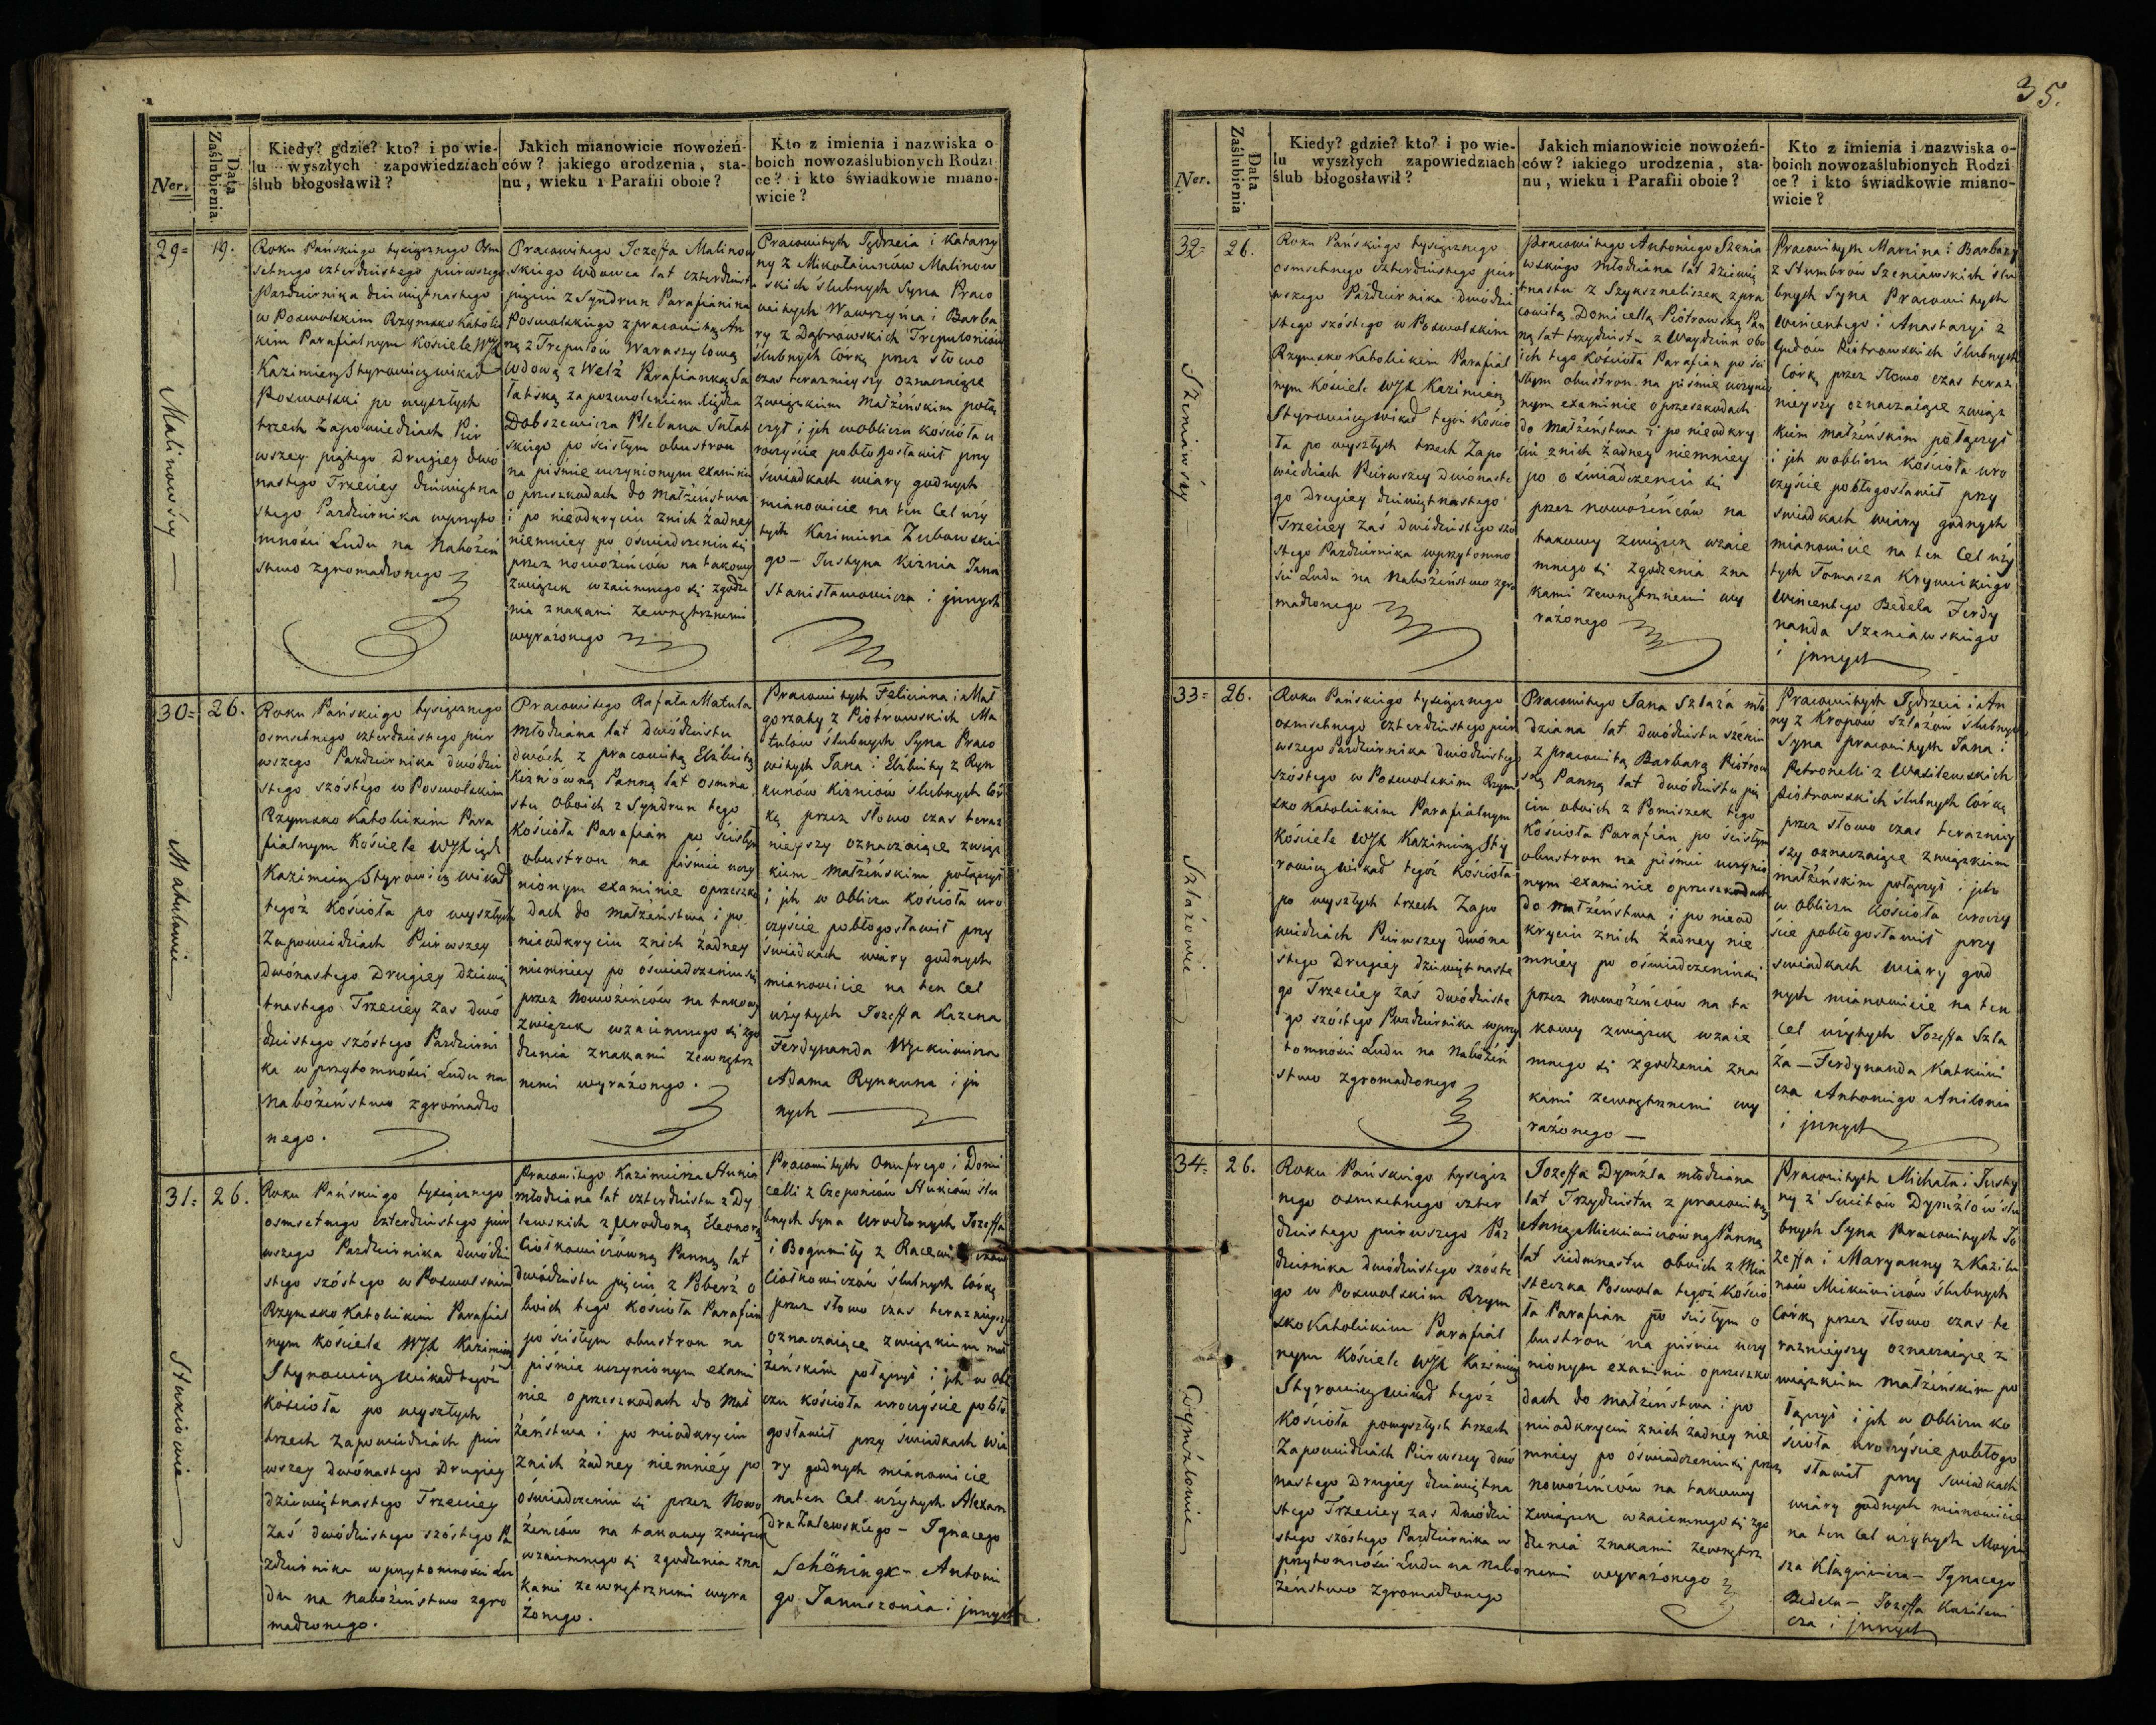 35.
Ner.
Data Zaślubienia.
Kiedy? gdzie? kto? i po wie-
lu wyszłych zapowiedziach
ślub błogosławił?
Jakich mianowicie nowożeń-
ców? jakiego urodzenia, sta-
nu, wieku i Parafii oboie?
Kto z imienia i nazwiska o
boich nowozaślubionych Rodzi
ce? i kto świadkowie miano-
wicie?
29=
19.
Malinowscy
Roku Pańskiego tysiącznego Osm
setnego czterdziestego pierwszego
Pazdziernika dziewiętnastego
w Poswolskim Rzymsko Katolic
kim Parafialnym Kościele WJX
Kazimierz Styrowicz wikad
Poswolski po wyszłych
trzech Zapowiedziach Pier
wszey piątego Drugiey dwó
nastego Trzeciey dziewiętna
stego Pazdziernika wprzyto
mności Ludu na Nabożeń
stwo zgromadzonego
Pracowitego Jozeffa Malinow
skiego Wdowca lat czterdziest
pięciu z Syndrun Parafianina
Poswolskiego z pracowitą An
ną z Trepułów Waraszylową
Wdową z Wełż Parafianką Sa
łatską za pozwoleniem Xiędza
Dobszewicza Plebana Sałat
skiego po ścisłym obustron
na piśmie uczynionym examinie
o przeszkodach do Małżeństwa
i po nieodkryciu znich żadney
niemniey po oswiadczeniu się
przez nowożeńców na takowy
związek wzaiemnego się zgodze
nia znakami zewnętrznemi
wyrażonego
Pracowitych Jędrzeia i Katarzy
ny z Mikołaiunów Malinow
skich ślubnych Syna Praco
witych Wawrzyńca i Barba
ry z Dąbrowskich Trepułoniów
ślubnych Córką przez słowo
czas teraznieyszy oznaczaiące
związkiem Małżeńskim połą
czył i jch wobliczu kościoła u
roczyście pobłogosławił przy
świadkach wiary godnych
mianowicie na ten Cel uży
tych Kazimierza Zubowskie
go – Justyna Kiznia Jana
Stanisławowicza i jnnych
30=
26.
Matulanie
Roku Pańskiego tysiącznego
osmsetnego czterdziestego pier
wszego Pazdziernika dwódzie
stego szóstego w Poswolskim
Rzymsko Katolickim Para
fialnym Kościele WJXiądz
Kazimierz Styrowicz wikad
tegoż Kościoła po wyszłych
Zapowiedziach Pierwszey
dwónastego Drugiey dziewię
tnastego Trzeciey zas dwó
dziestego szóstego Pazdzierni
ka w przytomności Ludu na
Nabożeństwo zgromadzo
nego.
Pracowitego Rafała Matula
Młodziana lat dwódziestu
dwóch z pracowitą Elżbietą
Kizniówną Panną lat osmna
stu Oboich z Syndrun tego
Kościoła Parafian po ścisłym
obustron na piśmie uczy
nionym examinie oprzeszko
dach do małżeństwa i po
nieodkryciu znich żadney
niemniey po oświadczeniu się
przez Nowożeńców na takowy
związek wzaiemnego się zgo
dzenia znakami zewnętrz
nemi wyrażonego.
Pracowitych Feliciana i Mał
gorzaty z Piotrowskich Ma
tulów ślubnych Syna Praco
witych Jana i Elżbiety z Ryn
kunów Kizniów slubnych Cór
ką przez słowo czas teraz
nieyszy oznaczaiące związ
kiem małżeńskim połączył
i jch w obliczu Kościoła uro
czyście pobłogosławił przy
świadkach wiary godnych
mianowicie na ten Cel
użytych Jozeffa Kazena
Ferdynanda
Adama Rynkuna i jn
nych
31=
26.
Stukiowie
Roku Pańskiego tysiącznego
osmsetnego czterdziestego pier
wszego Pazdziernika dwódzie
stego szóstego w Poswolskim
Rzymsko Katolickim Parafial
nym kościele WJX Kazimierz
Styrowicz wikad tegoż
Kościoła po wyszłych
trzech Zapowiedziach pier
wszey dwónastego Drugiey
dziewiętnastego Trzeciey
Zaś dwódziestego szóstego Pa
zdziernika wprzytomności Lu
du na Nabożeństwo zgro
madzonego.
Pracowitego Kazimierza Stukia
młodziana lat czterdziestu z Dy
lewskich z Urodzoną Eleonorą
Ciołkowiczówną Panną lat
dwódziestu pięciu z Poberż o
boich tego Kościoła Parafian
po ścisłym obustron na
piśmie uczynionym exami
nie o przeszkodach do Mał
żeństwa i po nieodkryciu
znich żadney niemniéy po
óświadczeniu się przez Nowo
żeńców na takowy związek
wzaiemnego się zgodzenia zna
kami zewnętrznemi wyra
żonego.
Pracowitych Onufrego i Domi
celli z Czeponiów Stukiów slu
bnych Syna Urodzonych Jozeffa
i Bogumiły z
Ciołkowiczów ślubnych Córką
przez słowo czas teraznieyszy
oznaczaiące związkiem mał
żeńskim połączył i jch w obli
czu kościoła uroczyście pobło
gosławił przy świadkach wia
ry godnych mianowicie
naten Cel użytych Alexan
dra Zalewskiego – Ignacego
Schöningk – Antonie
go Januszonia i jnnych.
Ner.
Data Zaślubienia
Kiedy? gdzie? kto? i po wie-
lu wyszłych zapowiedziach
ślub błogosławił?
Jakich mianowicie nowożeń-
ców? iakiego urodzenia, sta-
nu, wieku i Parafii oboie?
Kto z imienia i nazwiska o-
boich nowozaślubionych Rodzi
ce? i kto świadkowie miano-
wicie?
32=
26.
Szeniawscy
Roku Pańskiego tysiącznego
osmsetnego czterdziestego pier
wszego Pażdziernika dwódzie
stego szóstego w Poswolskim
Rzymsko Katolickim Parafial
nym Kościele WJX Kazimierz
Styrowicz wikad tegoż Kościo
ła po wyszłych trzech Zapo
wiedziach Pierwszey dwónaste
go Drugiey dziewiętnastego
Trzeciey zaś dwódziestego szó
stego Pazdziernika wprzytomno
ści Ludu na Nabożeństwo zgro
madzonego
Pracowitego Antoniego Szenia
wskiego Młodziana lat dziewię
tnastu z Szykszneliszek zpra
cowitą Domicellą Piotrowską Pan
ną lat trzydziestu z Waydziun obo
ich tego Kościoła Parafian po ści
słym obustron na piśmie uczynio
nym examinie o przeszkodach
do Małżeństwa i po nieodkry
ciu znich żadney niemniey
po oświadczeniu się
przez nowożeńców na
takowy związek wzaie
mnego się zgodzenia zna
kami zewnętrznemi wy
rażonego
Pracowitych Marcina i Barbary
z Stumbrów Szeniawskich slu
bnych Syna Pracowitych
Wincentego i Anastazyi z
Gudów Piotrowskich ślubnych
Córką przez słowo czas teraz
nieyszy oznaczaiące związ
kiem małżeńskim połączył
i jch wobliczu Kościoła uro
czyście pobłogosławił przy
swiadkach wiary godnych
mianowicie na ten Cel uży
tych Tomasza Krynickiego
Wincentego Bedela Ferdy
nanda Szeniawskiego
i jnnych
33=
26.
Szlażowie
Roku Pańskiego tysiącznego
osmsetnego czterdziestego pier
wszego Pazdziernika dwódziestego
szóstego w Poswolskim Rzym
sko Katolickim Parafialnym
Kościele WJX Kazimierz Sty
rowicz wikad tegoż Kościoła
po wyszłych trzech Zapo
wiedziach Pierwszey dwóna
stego Drugiey dziewiętnaste
go Trzeciey zaś dwódzieste
go szóstego Pazdziernika wprzy
tomności Ludu na Nabożeń
stwo zgromadzonego
Pracowitego Jana Szlaża mło
dziana lat dwódziestu sześciu
z pracowitą Barbarą Piotrow
ską Panną lat dwódziestu pię
ciu oboich z Pomiszek tego
Kościoła Parafian po ścisłym
obustron na piśmie uczynio
nym examinie oprzeszkodach
do Małżeństwa i po nieod
kryciu znich żadney nie
mniey po oświadczeniu się
przez Nowożeńców na ta
kowy związek wzaie
mnego się zgodzenia zna
kami zewnętrznemi wy
rażonego
Pracowitych Jędrzeia i An
ny z Kropów Szlażów slubnych
Syna pracowitych Jana i
Petronelli z Wasilewskich
Piotrowskich ślubnych Córką
przez słowo czas terazniey
szy oznaczaiące związkiem
małżeńskim połączył i jch
w obliczu Kościoła uroczy
ście pobłogosławił przy
swiadkach wiary god
nych mianowicie na ten
Cel użytych Jozeffa Szla
ża – Ferdynanda Katkiewi
cza Antoniego Anilonia
i jnnych
34=
26.
Dymżlowie
Roku Pańskiego tysiącz
nego osmsetnego czter
dziestego pierwszego Paz
dziernika dwódziestego szóste
go w Poswolskim Rzym
sko Katolickim Parafial
nym Kościele WJX Kazimierz
Styrowicz wikad tegoż
Kościoła powyszłych trzech
Zapowiedziach Pierwszey dwó
nastego Drugiey dziewiętna
stego Trzeciey zas dwódzie
stego szóstego Pazdziernika w
przytomności Ludu na Nabo
żeństwo zgromadzonego
Jozeffa Dymżla młodziana
lat Trzydziestu z pracowitą
Anną Mickiewiczówną Panną
lat siedmnastu oboich z Mia
steczka Poswola tegoż Kościo
ła Parafian po scisłym o
bustron na piśmie uczy
nionym examinie oprzeszko
dach do małżeństwa i po
nieodkryciu znich żadney nie
mniey po óświadczeniu się przez
nowożeńców na takowy
związek wzaiemnego się zgo
dzenia znakami zewnętrz
nemi wyrażonego
Pracowitych Michała i Justy
ny z Suitów Dymżlów slu
bnych Syna Pracowitych Jo
zeffa i Maryanny z Kazile
nów Mickiewiczów slubnych
Córką przez słowo czas te
raznieyszy oznaczaiące z
wiązkiem małżeńskim po
łączył i jch w Obliczu ko
ścioła uroczyście pobłogo
sławił przy swiadkach
wiary godnych mianowicie
na ten Cel użytych Moyże
sza – Ignacego
Bedela – Jozeffa Kazilewi
cza i jnnych